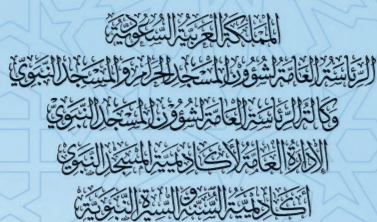 المملكة العربية السعودية
الرئاسة العامة لشؤون المسجد الحرام والمسجد النبوي
وكالة الرئاسة العامة لشؤون المسجد النبوي
الإدارة العامة لأكاديمية المسجد النبوي
أكاديمية السيرة النبوية